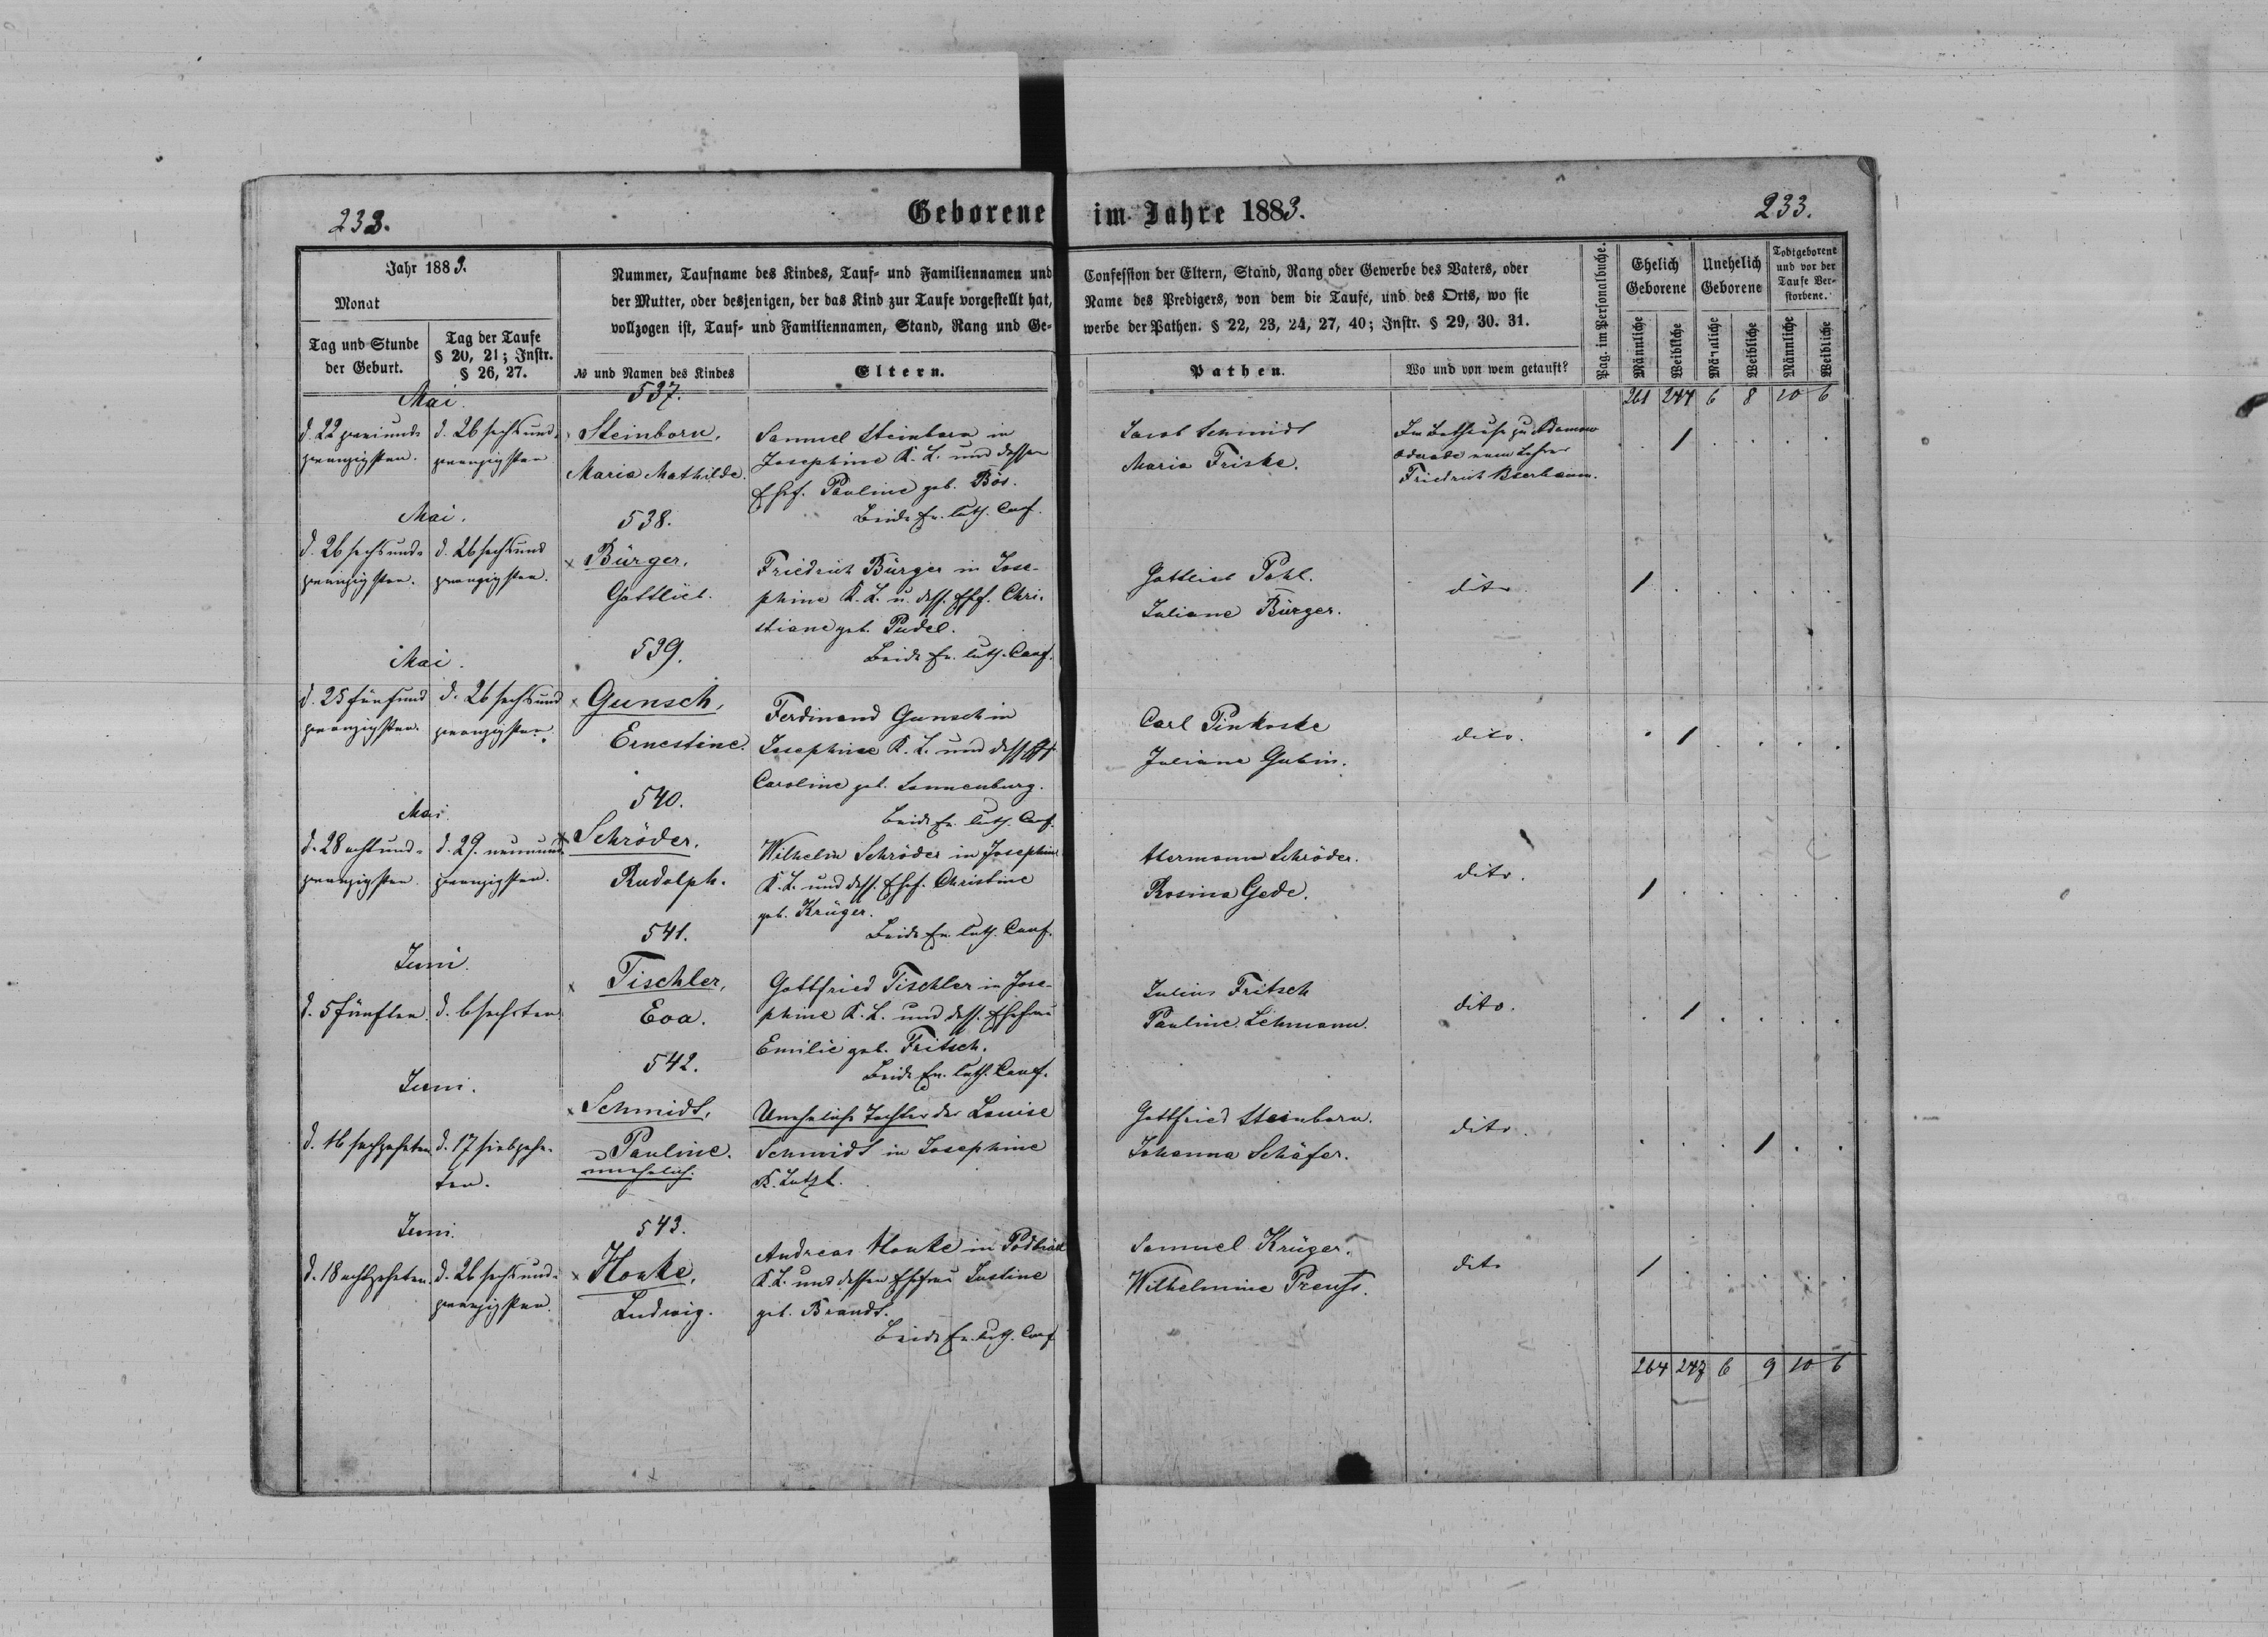 233.
Geborene im Jahre 1883.
233.
Jahr 1883.
Monat
Tag und Stunde
der Geburt.
Tag der Taufe
§ 20, 21; Instr.
§ 26, 27.
Nummer, Taufname des Kindes, Tauf- und Familiennamen und
der Mutter, oder desjenigen, der das Kind zur Taufe vorgestellt hat,
vollzogen ist, Tauf- und Familiennamen, Stand, Rang und Ge-
№ und Namen des Kindes
Eltern.
Confession der Eltern, Stand, Rang oder Gewerbe des Vaters, oder
Name des Predigers, von dem die Taufe, und des Orts, wo sie
werbe der Pathen. § 22, 23, 24, 27, 40; Instr. § 29, 30. 31.
Pathen.
Wo und von wem getauft?
Pag. im Personalbuche.
Ehelich
Geborene
Unehelich
Geborene
Todtgeborene
und vor der
Taufe Ver-
storbene.
Männliche
Weibliche
Männliche
Weibliche
Männliche
Weibliche
261 244 6 8 10 6
Mai.
537.
d. 22 zweiund-
zwanzigsten.
d. 26 sechsund-
zwanzigsten
Steinborn,
Maria Mathilde.
Samuel Steinborn in
Josephine K. L. und dessen
Ehef. Pauline geb. Bös.
Beide Ev. luth. Conf.
Jacob Schmidt
Maria Friske.
Im Bethause zu Adamow
vom Lehrer
Friedrich Beerbaum.
1
Mai.
538.
d. 26 sechsund-
zwanzigsten.
d. 26 sechsund
zwanzigsten.
× Bürger,
Gottlieb.
Friedrich Bürger in Jose-
phine K. L. u. dess. Ehf. Chri-
stiane geb. Pudel.
Beide Ev. luth. Conf.
Gottlieb Pohl.
Juliane Bürger.
dito.
1
Mai.
539.
d. 25 fünfund
zwanzigsten.
d. 26 sechsund
zwanzigsten.
× Gunsch,
Ernestine.
Ferdinand Gunsch in
Josephine K. L. und dess. Ehf.
Caroline geb. Sonnenburg.
Beide Ev. luth. Conf.
Carl Pinkoske
Juliane Gubin.
dito.
1
Mai.
540.
d. 28 achtund-
zwanzigsten.
d. 29. neunund-
zwanzigsten.
× Schröder,
Rudolph.
Wilhelm Schröder in Josephine
K. L. und dess. Ehef. Christine
geb. Krüger.
Beide Ev. luth. Conf.
Hermann Schröder.
Rosina Gede.
dito.
1
Juni.
541.
d. 5 fünften.
d. 6 sechsten
× Tischler,
Eva.
Gottfried Tischler in Jose-
phine K. L. und dess. Ehefrau
Emilie geb. Fritsch.
Beide Ev. luth. Conf.
Julius Fritsch
Pauline Lehmann.
dito.
1
Juni.
542.
d. 16 sechzehnten
d. 17 siebzehn-
ten.
× Schmidt,
Pauline.
unehelich.
Uneheliche Tochter der Louise
Schmidt in Josephine
Gottfried Steinborn.
Johanna Schäfer.
dito.
1
Juni.
543.
d. 18 achtzehnten.
d. 26 sechsund-
zwanzigsten.
× Honke,
Ludwig.
Andreas Honke in
K. L. und dessen Ehefrau Justine
geb. Brandt.
Beide Ev. luth. Conf
Samuel Krüger.
Wilhelmine Preuß.
dito
1
264 247 6 9 10 6